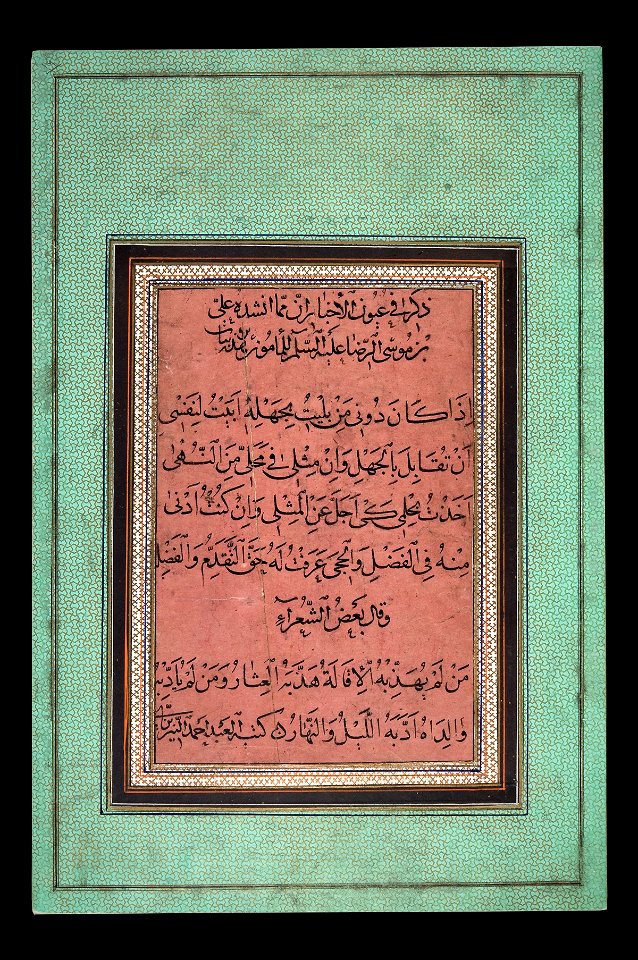 ذكر في عيون الأخبار ان مما انشده علي
بن موسى الرضا عليه السلم للمأمون
اذا كان دوني من بليت بجهله ابيت لنفسي
ان تقابل بالجهل وان مثلي في محلي من النهى
اخذت بحلمي كي اجل عن المثل وان كنت ادنى
منه في الفضل والحجى عرفت له حق التقدم والفضل
وقال بعض الشعراء
من لم يهذبه الإقالة هذبه العثار ومن لم يادبه
والداه ادبه الليل والنهار كتبه العبد احمد النيريزي